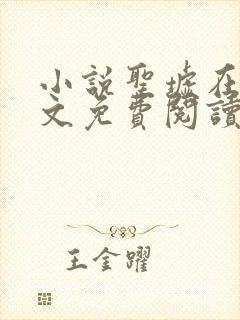 小說聖墟在
文免費閱讀
王金躍